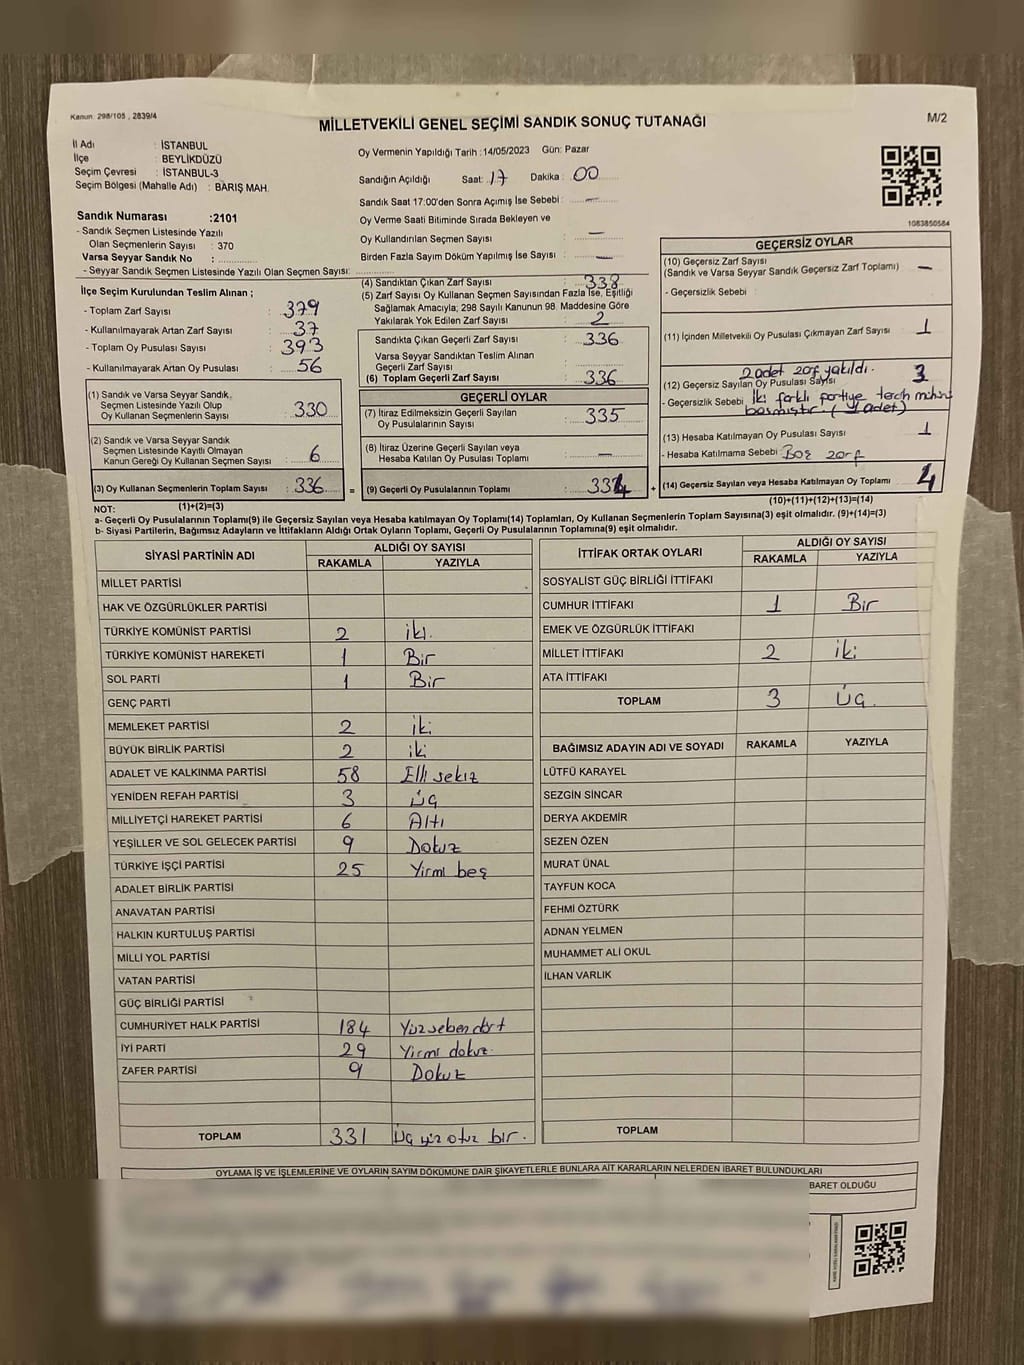 Kanun: 298/105 , 2839/4
MİLLETVEKİLİ GENEL SEÇİMİ SANDIK SONUÇ TUTANAĞI
M/2
İl Adı : İSTANBUL
İlçe : BEYLİKDÜZÜ
Seçim Çevresi : İSTANBUL-3
Seçim Bölgesi (Mahalle Adı) : BARIŞ MAH.
Sandık Numarası :2101
- Sandık Seçmen Listesinde Yazılı
Olan Seçmenlerin Sayısı : 370
Varsa Seyyar Sandık No :
- Seyyar Sandık Seçmen Listesinde Yazılı Olan Seçmen Sayısı:
Oy Vermenin Yapıldığı Tarih :14/05/2023 Gün: Pazar
Sandığın Açıldığı Saat: 17 Dakika : 00
Sandık Saat 17:00'den Sonra Açımış İse Sebebi : —
Oy Verme Saati Bitiminde Sırada Bekleyen ve
Oy Kullandırılan Seçmen Sayısı : —
Birden Fazla Sayım Döküm Yapılmış İse Sayısı : —
1083850584
İlçe Seçim Kurulundan Teslim Alınan ;
- Toplam Zarf Sayısı : 379
- Kullanılmayarak Artan Zarf Sayısı : 37
- Toplam Oy Pusulası Sayısı : 393
- Kullanılmayarak Artan Oy Pusulası : 56
(1) Sandık ve Varsa Seyyar Sandık
Seçmen Listesinde Yazılı Olup
Oy Kullanan Seçmenlerin Sayısı : 330
(2) Sandık ve Varsa Seyyar Sandık
Seçmen Listesinde Kayıtlı Olmayan
Kanun Gereği Oy Kullanan Seçmen Sayısı : 6
(3) Oy Kullanan Seçmenlerin Toplam Sayısı : 336 =
(4) Sandıktan Çıkan Zarf Sayısı : 338
(5) Zarf Sayısı Oy Kullanan Seçmen Sayısından Fazla İse, Eşitliği
Sağlamak Amacıyla; 298 Sayılı Kanunun 98. Maddesine Göre
Yakılarak Yok Edilen Zarf Sayısı : 2
Sandıkta Çıkan Geçerli Zarf Sayısı : 336
Varsa Seyyar Sandıktan Teslim Alınan
Geçerli Zarf Sayısı :
(6) Toplam Geçerli Zarf Sayısı : 336
GEÇERLİ OYLAR
(7) İtiraz Edilmeksizin Geçerli Sayılan
Oy Pusulalarının Sayısı : 335
(8) İtiraz Üzerine Geçerli Sayılan veya
Hesaba Katılan Oy Pusulası Toplamı : —
(9) Geçerli Oy Pusulalarının Toplamı : +
GEÇERSİZ OYLAR
(10) Geçersiz Zarf Sayısı
(Sandık ve Varsa Seyyar Sandık Geçersiz Zarf Toplamı) : —
- Geçersizlik Sebebi :
(11) İçinden Milletvekili Oy Pusulası Çıkmayan Zarf Sayısı : 1
2 adet zarf yakıldı.
(12) Geçersiz Sayılan Oy Pusulası Sayısı : 3
- Geçersizlik Sebebi : İki farklı partiye tercih mührü
basmıştır.
(13) Hesaba Katılmayan Oy Pusulası Sayısı : 1
- Hesaba Katılmama Sebebi : Boş zarf
(14) Geçersiz Sayılan veya Hesaba Katılmayan Oy Toplamı : 4
NOT: (1)+(2)=(3)
(10)+(11)+(12)+(13)=(14)
a- Geçerli Oy Pusulalarının Toplamı(9) ile Geçersiz Sayılan veya Hesaba katılmayan Oy Toplamı(14) Toplamları, Oy Kullanan Seçmenlerin Toplam Sayısına(3) eşit olmalıdır. (9)+(14)=(3)
b- Siyasi Partilerin, Bağımsız Adayların ve İttifakların Aldığı Ortak Oyların Toplamı, Geçerli Oy Pusulalarının Toplamına(9) eşit olmalıdır.
SİYASİ PARTİNİN ADI ALDIĞI OY SAYISI
RAKAMLA YAZIYLA
MİLLET PARTİSİ
HAK VE ÖZGÜRLÜKLER PARTİSİ
TÜRKİYE KOMÜNİST PARTİSİ 2 iki.
TÜRKİYE KOMÜNİST HAREKETİ 1 Bir
SOL PARTİ 1 Bir
GENÇ PARTİ
MEMLEKET PARTİSİ 2 iki
BÜYÜK BİRLİK PARTİSİ 2 iki
ADALET VE KALKINMA PARTİSİ 58 Elli sekiz
YENİDEN REFAH PARTİSİ 3 Üç
MİLLİYETÇİ HAREKET PARTİSİ 6 Altı
YEŞİLLER VE SOL GELECEK PARTİSİ 9 Dokuz
TÜRKİYE İŞÇİ PARTİSİ 25 Yirmi beş
ADALET BİRLİK PARTİSİ
ANAVATAN PARTİSİ
HALKIN KURTULUŞ PARTİSİ
MİLLİ YOL PARTİSİ
VATAN PARTİSİ
GÜÇ BİRLİĞİ PARTİSİ
CUMHURİYET HALK PARTİSİ 184 Yüzseksendört
İYİ PARTİ 29 Yirmi dokuz
ZAFER PARTİSİ 9 Dokuz
TOPLAM 331 Üç yüz otuz bir.
İTTİFAK ORTAK OYLARI ALDIĞI OY SAYISI
RAKAMLA YAZIYLA
SOSYALİST GÜÇ BİRLİĞİ İTTİFAKI
CUMHUR İTTİFAKI 1 Bir
EMEK VE ÖZGÜRLÜK İTTİFAKI
MİLLET İTTİFAKI 2 iki
ATA İTTİFAKI
TOPLAM 3 Üç
BAĞIMSIZ ADAYIN ADI VE SOYADI RAKAMLA YAZIYLA
LÜTFÜ KARAYEL
SEZGİN SİNCAR
DERYA AKDEMİR
SEZEN ÖZEN
MURAT ÜNAL
TAYFUN KOCA
FEHMİ ÖZTÜRK
ADNAN YELMEN
MUHAMMET ALİ OKUL
İLHAN VARLIK
TOPLAM
OYLAMA İŞ VE İŞLEMLERİNE VE OYLARIN SAYIM DÖKÜMÜNE DAİR ŞİKAYETLERLE BUNLARA AİT KARARLARIN NELERDEN İBARET BULUNDUKLARI
BARET OLDUĞU